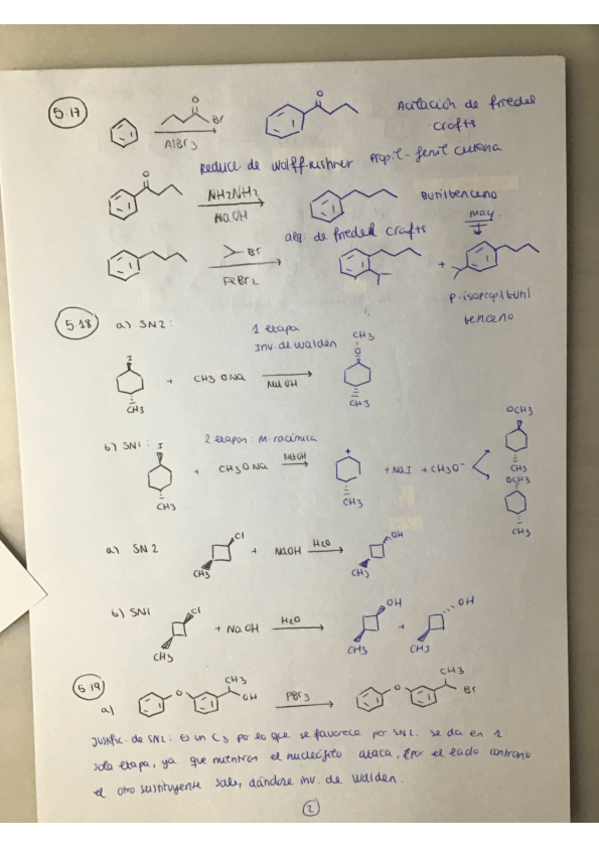 5.17
O
Br
AlBr3
O
Acilación de friedel
crafts
Reduce de wolff-kishner
Propil-fenil cetona
O
NH2NH2
NaOH
Butilbenceno
may.
alq. de friedel crafts
Br
FeBr2
+
p-isopropilbutil
benceno
5.18
a) SN2:
1 etapa
Inv. de walden
CH3
O
I
+ CH3ONa
MeOH
CH3
CH3
b) SN1:
I
2 etapas: M. racémica
OCH3
+ CH3ONa
MeOH
+
+ NaI + CH3O-
CH3
CH3
CH3
OCH3
CH3
a) SN2
Cl
+ NaOH
H2O
OH
CH3
CH3
b) SN1
Cl
+ NaOH
H2O
OH
+
OH
CH3
CH3
CH3
5.19
a)
O
CH3
OH
PBr3
O
CH3
Br
Justific. de SN2: Es un C3 por lo que se favorece por SN2. Se da en 1
sola etapa, ya que mientras el nucleófilo ataca, por el lado contrario
el otro sustituyente sale, dándose inv. de walden.
2